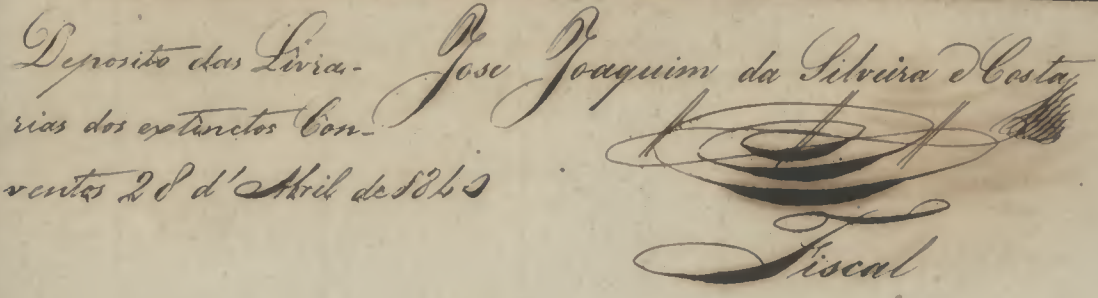 Deposito das Livra-
rias dos extinctos Con-
ventos 28 d'Abril de
José Joaquim da Silveira e Costa
Fiscal